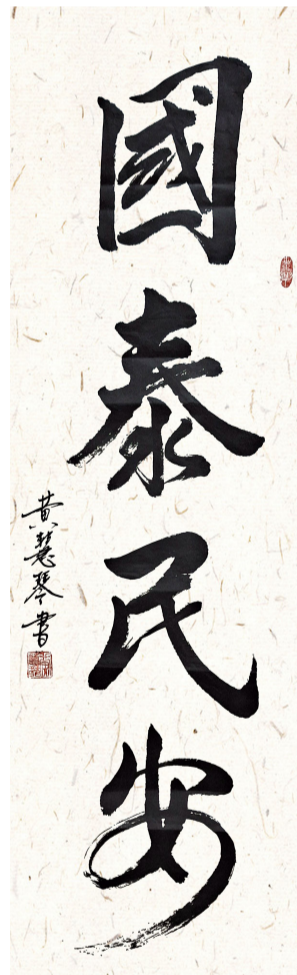 國泰民安
黄慧琴書